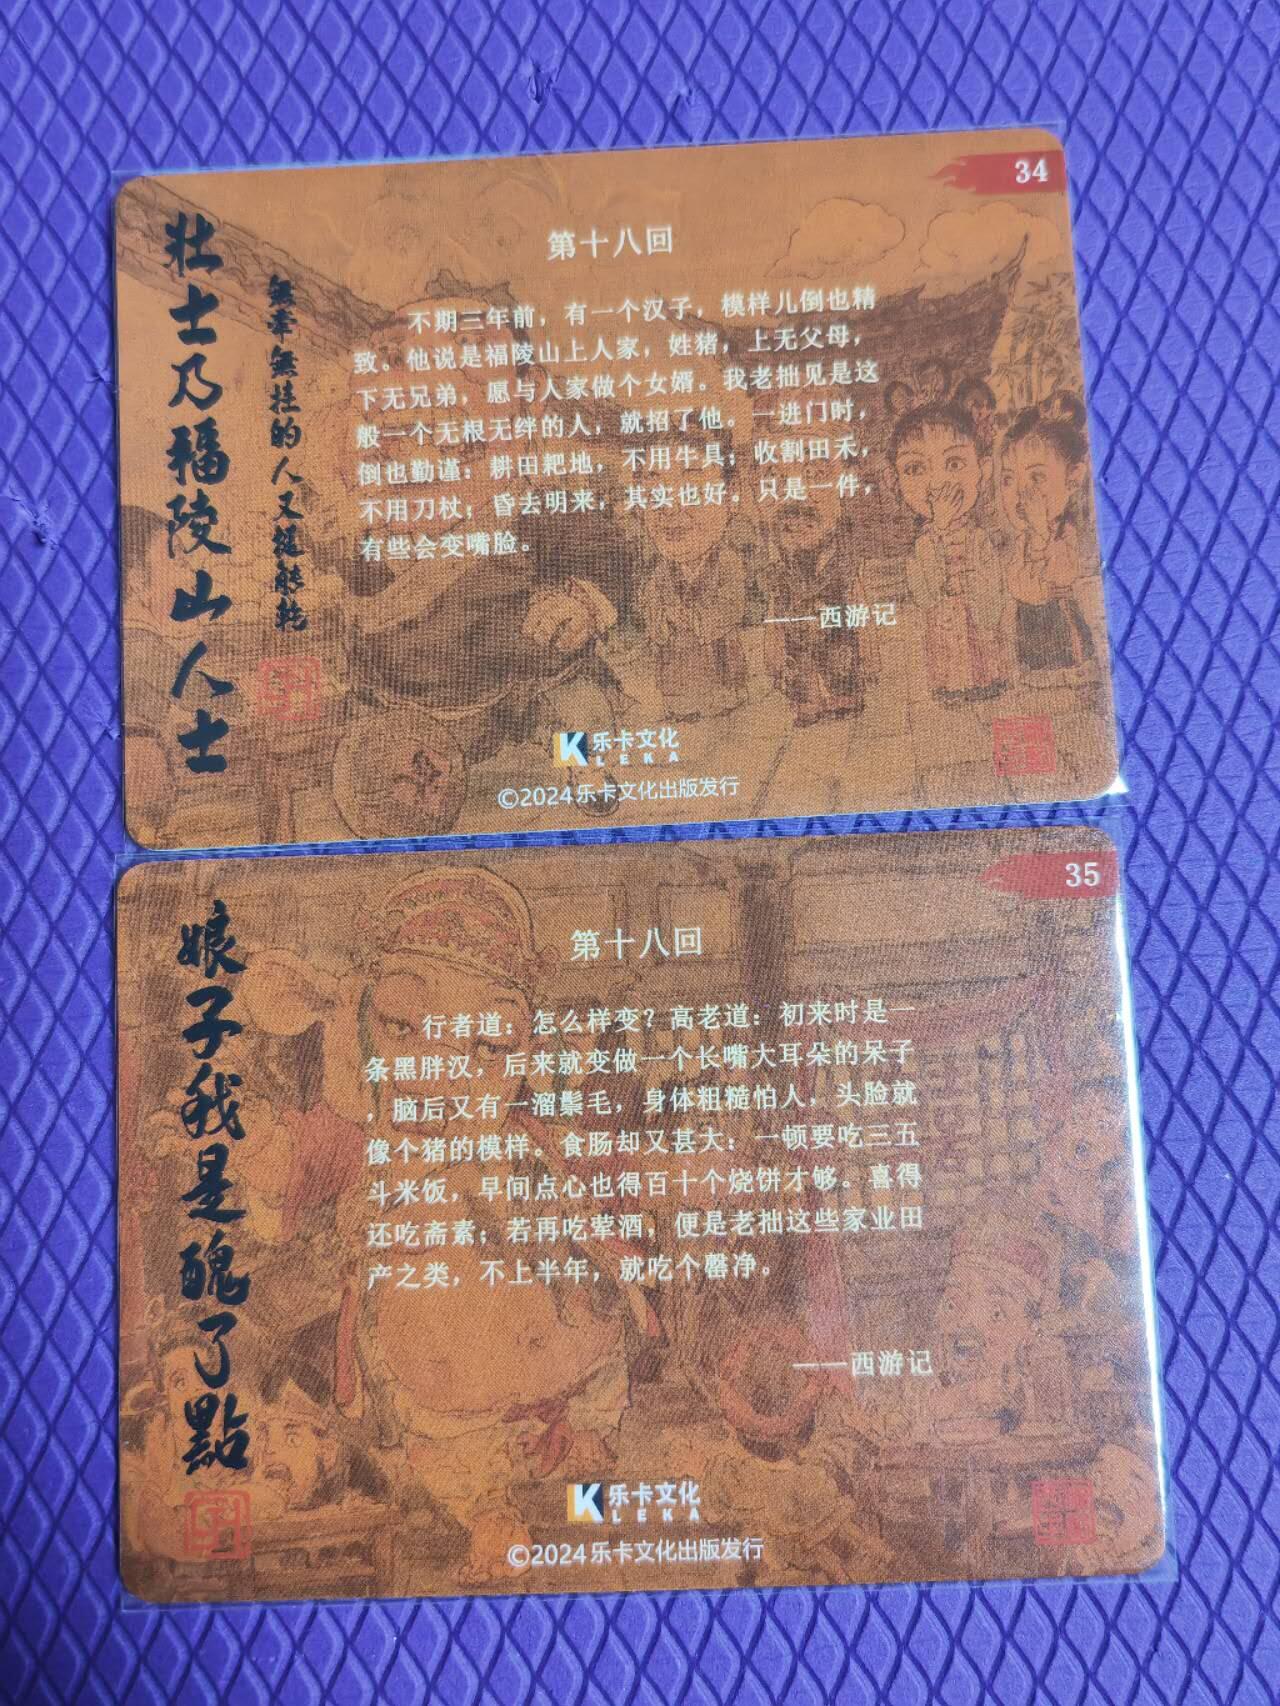 34
壮士乃福陵山人士
無牽無挂的人又挺能乾
第十八回
不期三年前，有一个汉子，模样儿倒也精
致。他说是福陵山上人家，姓猪，上无父母，
下无兄弟，愿与人家做个女婿。我老拙见是这
般一个无根无绊的人，就招了他。一进门时，
倒也勤谨：耕田耙地，不用牛具；收割田禾，
不用刀杖；昏去明来，其实也好。只是一件，
有些会变嘴脸。
——西游记
K 乐卡文化
LEKA
©2024乐卡文化出版发行
35
娘子我是醜了點
第十八回
行者道：怎么样变？高老道：初来时是一
条黑胖汉，后来就变做一个长嘴大耳朵的呆子
，脑后又有一溜鬃毛，身体粗糙怕人，头脸就
像个猪的模样。食肠却又甚大：一顿要吃三五
斗米饭，早间点心也得百十个烧饼才够。喜得
还吃斋素；若再吃荤酒，便是老拙这些家业田
产之类，不上半年，就吃个罄净。
——西游记
K 乐卡文化
LEKA
©2024乐卡文化出版发行